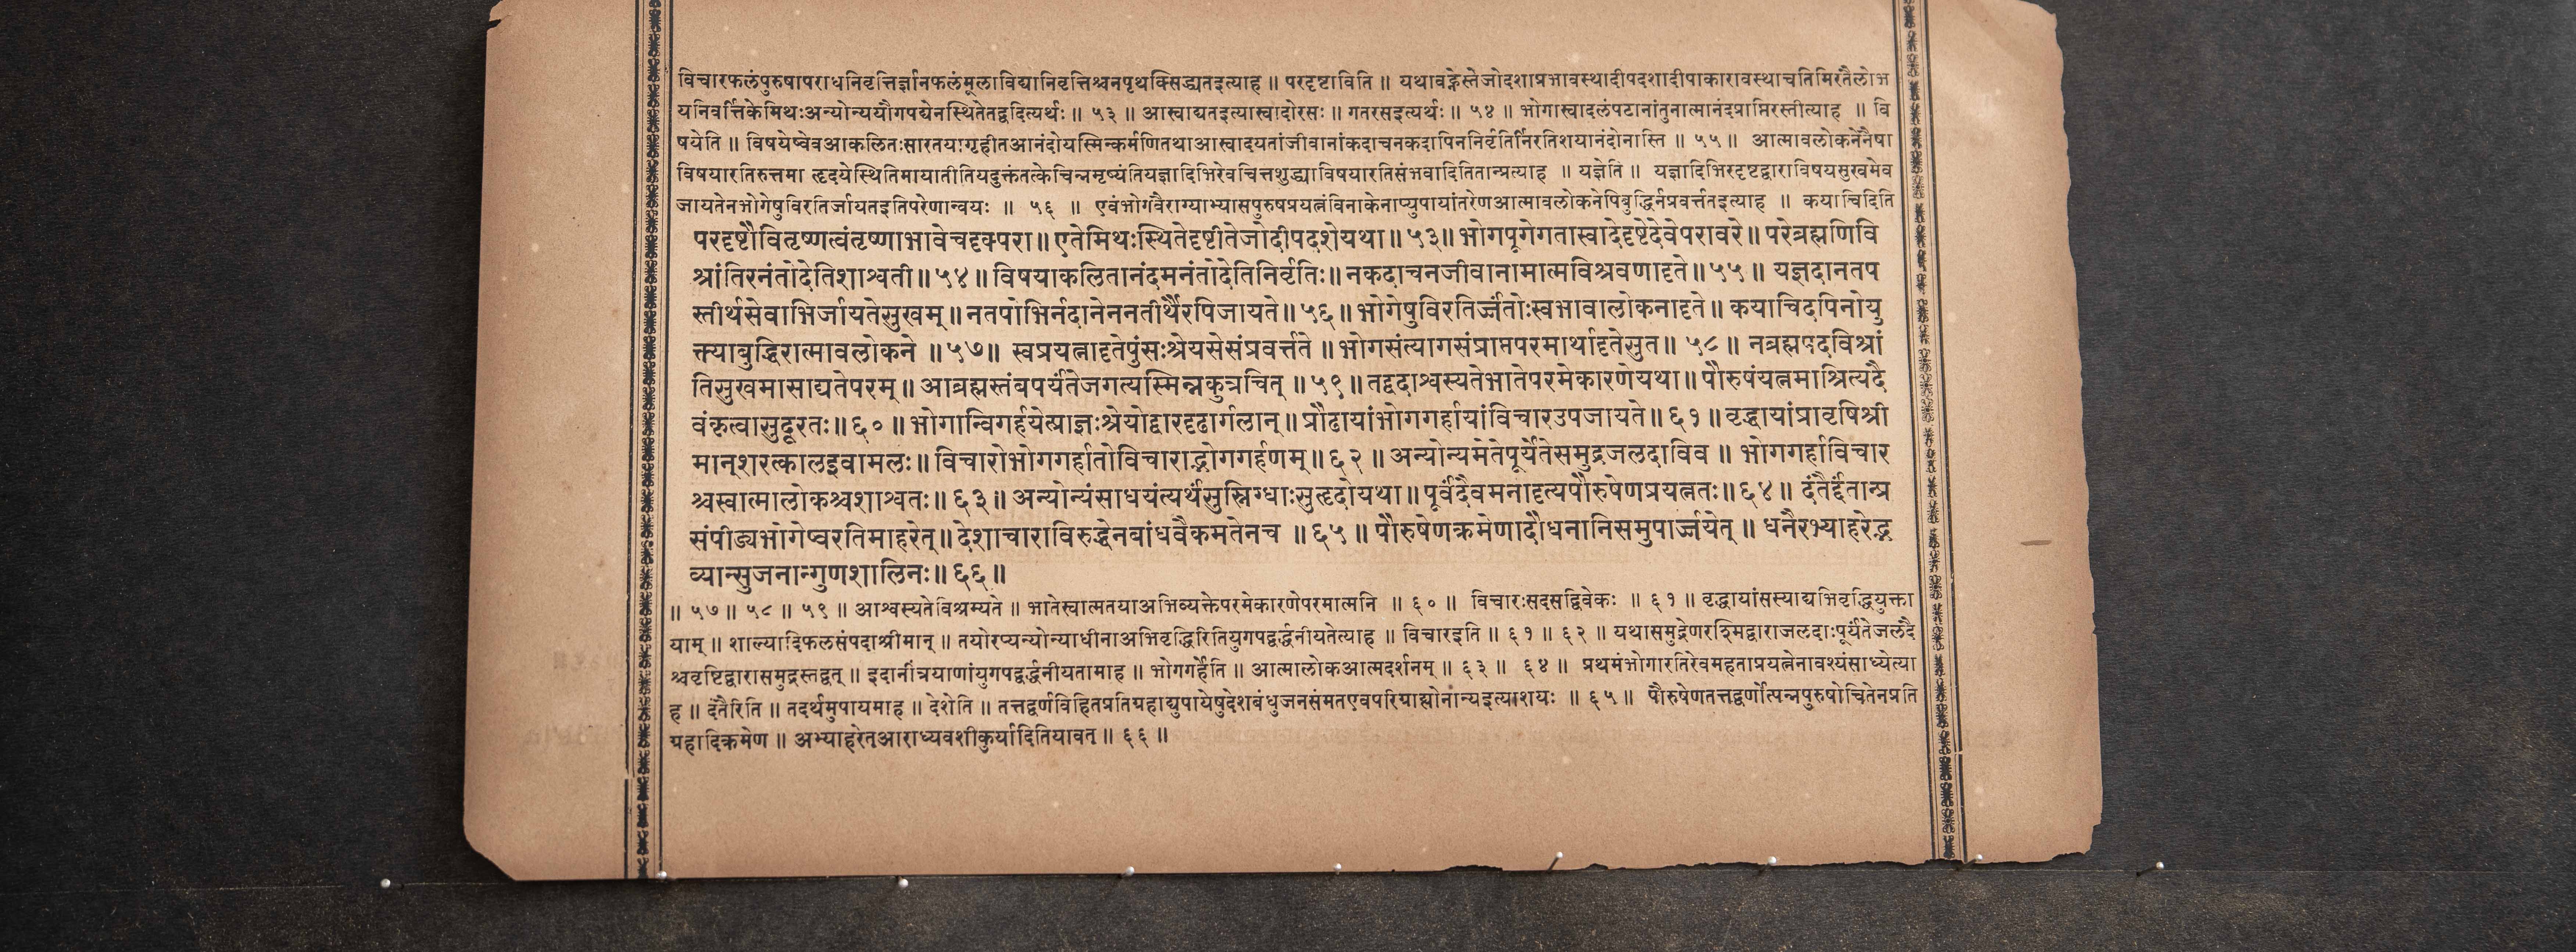 विचारफलंपुरुषापराधनिवृत्तिर्ज्ञानफलंमूलाविद्यानिवृत्तिश्चनपृथक्सिद्ध्यतइत्याह ॥ परदृष्टाविति ॥ यथावह्नेस्तेजोदशाप्रभावस्थादीपदशादीपाकारावस्थाचतिमिरतैलोभ
यनिवर्त्तिकेमिथःअन्योन्ययौगपद्येनस्थितेतद्वदित्यर्थः ॥ ५३ ॥ आस्वाद्यतइत्यास्वादोरसः ॥ गतरसइत्यर्थः ॥ ५४ ॥ भोगास्वादलंपटानांतुनात्मानंदप्राप्तिरस्तीत्याह ॥ वि
षयेति ॥ विषयेष्वेवआकलितःसारतयागृहीतआनंदोयस्मिन्कर्मणितथाआस्वादयतांजीवानांकदाचनकदापिननिर्वृतिर्निरतिशयानंदोनास्ति ॥ ५५ ॥ आत्मावलोकनेनैषा
विषयारतिरुत्तमा हृदयेस्थितिमायातीतियदुक्तंतत्केचिन्नमृष्यंतियज्ञादिभिरेवचित्तशुद्ध्याविषयारतिसंभवादितितान्प्रत्याह ॥ यज्ञेति ॥ यज्ञादिभिरदृष्टद्वाराविषयसुखमेव
जायतेनभोगेषुविरतिर्जायतइतिपरेणान्वयः ॥ ५६ ॥ एवंभोगवैराग्याभ्यासपुरुषप्रयत्नंविनाकेनाप्युपायांतरेणआत्मावलोकनेपिबुद्धिर्नप्रवर्त्ततइत्याह ॥ कयाचिदिति
परदृष्टौवितृष्णत्वंतृष्णाभावेचदृक्परा ॥ एतेमिथःस्थितेदृष्टीतेजोदीपदशेयथा ॥ ५३ ॥ भोगपूगेगतास्वादेदृष्टेदेवेपरावरे ॥ परेब्रह्मणिवि
श्रांतिरनंतोदेतिशाश्वती ॥ ५४ ॥ विषयाकलितानंदमनंतोदेतिनिर्वृतिः ॥ नकदाचनजीवानामात्मविश्रवणादृते ॥ ५५ ॥ यज्ञदानतप
स्तीर्थसेवाभिर्जायतेसुखम् ॥ नतपोभिर्नदानेननतीर्थैरपिजायते ॥ ५६ ॥ भोगेषुविरतिर्ज्जंतोःस्वभावालोकनादृते ॥ कयाचिदपिनोयु
क्त्याबुद्धिरात्मावलोकने ॥ ५७ ॥ स्वप्रयत्नादृतेपुंसःश्रेयसेसंप्रवर्त्तते ॥ भोगसंत्यागसंप्राप्तपरमार्थादृतेसुत ॥ ५८ ॥ नब्रह्मपदविश्रां
तिसुखमासाद्यतेपरम् ॥ आब्रह्मस्तंबपर्यंतेजगत्यस्मिन्नकुत्रचित् ॥ ५९ ॥ तद्वदाश्वस्यतेभातेपरमेकारणेयथा ॥ पौरुषंयत्नमाश्रित्यदै
वंकृत्वासुदूरतः ॥ ६० ॥ भोगान्विगर्हयेत्प्राज्ञःश्रेयोद्वारदृढार्गलान् ॥ प्रौढायांभोगगर्हायांविचारउपजायते ॥ ६१ ॥ वृद्धायांप्रावृषिश्री
मान्शरत्कालइवामलः ॥ विचारोभोगगर्हातोविचाराद्भोगगर्हणम् ॥ ६२ ॥ अन्योन्यमेतेपूर्येतेसमुद्रजलदाविव ॥ भोगगर्हाविचार
श्चस्वात्मालोकश्चशाश्वतः ॥ ६३ ॥ अन्योन्यंसाधयंत्यर्थंसुस्निग्धाःसुहृदोयथा ॥ पूर्वंदैवमनादृत्यपौरुषेणप्रयत्नतः ॥ ६४ ॥ दंतैर्द्दंतान्प्र
संपीड्यभोगेष्वरतिमाहरेत् ॥ देशाचाराविरुद्धेनबांधवैकमतेनच ॥ ६५ ॥ पौरुषेणक्रमेणादौधनानिसमुपार्ज्जयेत् ॥ धनैरभ्याहरेद्भ
व्यान्सुजनान्गुणशालिनः ॥ ६६ ॥
॥ ५७ ॥ ५८ ॥ ५९ ॥ आश्वस्यतेविश्रम्यते ॥ भातेस्वात्मतयाअभिव्यक्तेपरमेकारणेपरमात्मनि ॥ ६० ॥ विचारःसदसद्विवेकः ॥ ६१ ॥ वृद्धायांसस्याद्यभिवृद्धियुक्ता
याम् ॥ शाल्यादिफलसंपदाश्रीमान् ॥ तयोरप्यन्योन्याधीनाअभिवृद्धिरितियुगपद्वर्द्धनीयतेत्याह ॥ विचारइति ॥ ६१ ॥ ६२ ॥ यथासमुद्रेणरश्मिद्वाराजलदाःपूर्यंतेजलदै
श्चवृष्टिद्वारासमुद्रस्तद्वत् ॥ इदानींत्रयाणांयुगपद्वर्द्धनीयतामाह ॥ भोगगर्हेति ॥ आत्मालोकआत्मदर्शनम् ॥ ६३ ॥ ६४ ॥ प्रथमंभोगारतिरेवमहताप्रयत्नेनावश्यंसाध्येत्या
ह ॥ दंतैरिति ॥ तदर्थमुपायमाह ॥ देशेति ॥ तत्तद्वर्णविहितप्रतिग्रहाद्युपायेषुदेशबंधुजनसंमतएवपरिग्राह्योनान्यइत्याशयः ॥ ६५ ॥ पौरुषेणतत्तद्वर्णोत्पन्नपुरुषोचितेनप्रति
ग्रहादिक्रमेण ॥ अभ्याहरेत्आराध्यवशीकुर्यादितियावत् ॥ ६६ ॥